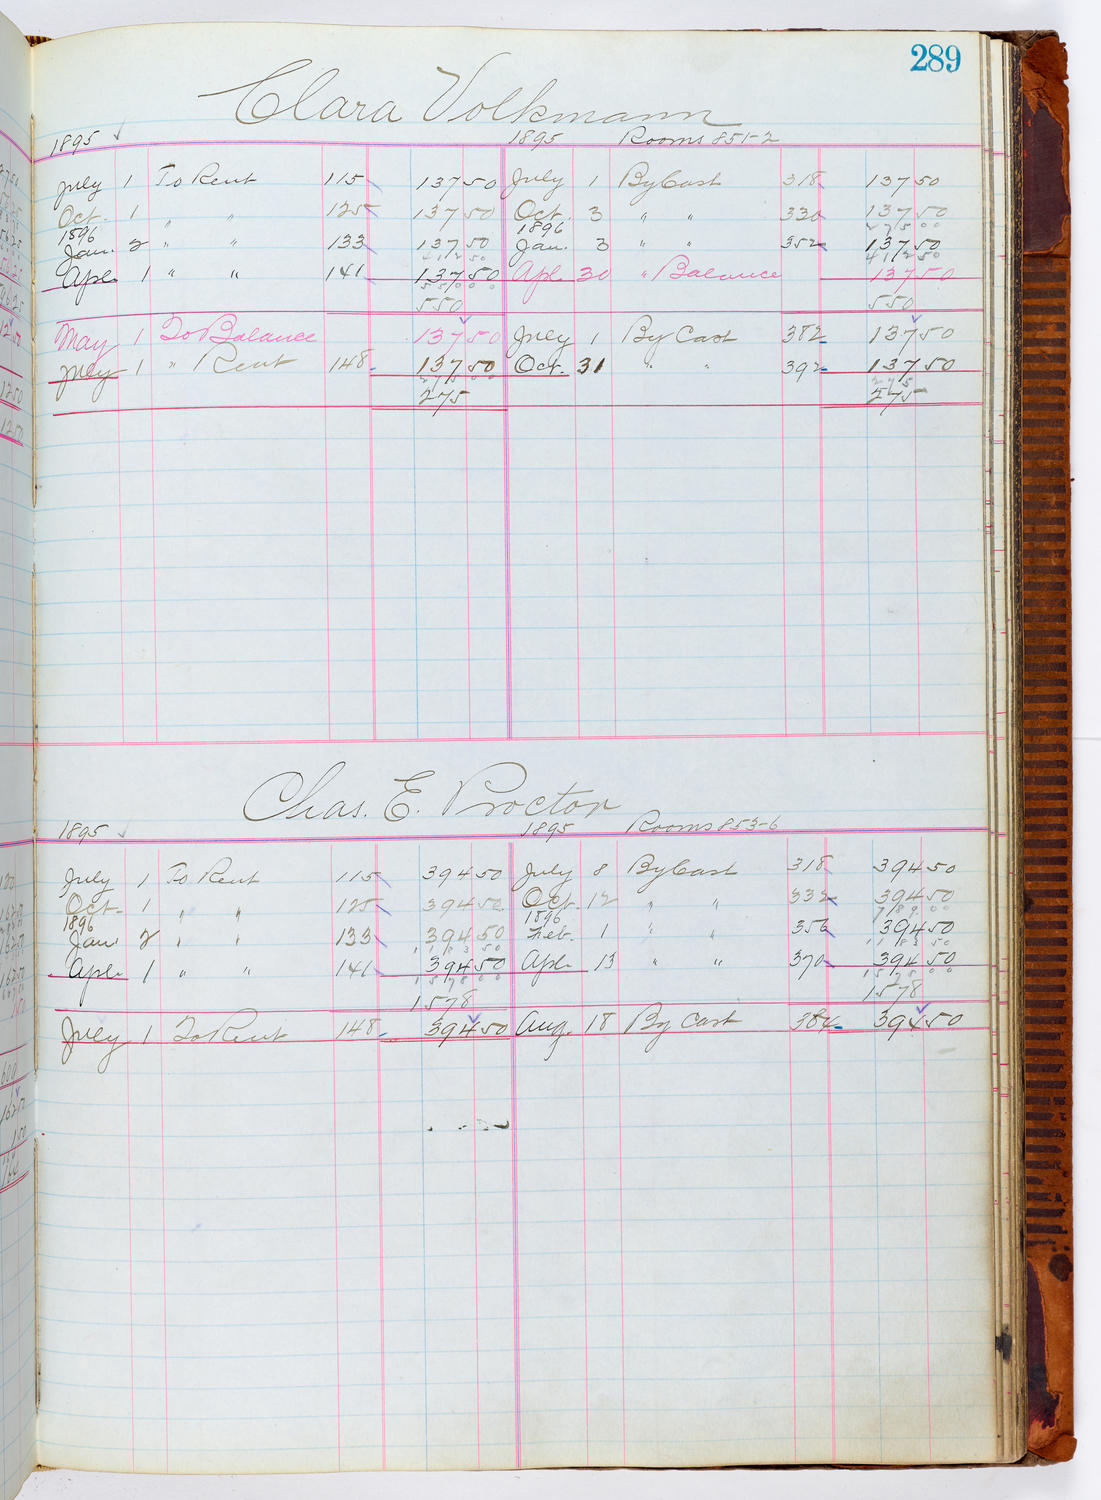 289
Clara Volkmann
1895 1895 Rooms 851-2
July 1 To Rent 115 137 50 July 1 By Cash 318 137 50
Oct. 1 " " 125 137 50 Oct. 3 " " 330 137 50
1896 1896 275 00
Jan. 2 " " 133 137 50 Jan. 3 " " 352 137 50
412 50 412 50
Apl. 1 " " 141 137 50 Apl. 30 " Balance 137 50
550 00
550 550
May 1 To Balance 137 50 July 1 By Cash 382 137 50
July 1 " Rent 148 137 50 Oct. 31 " " 392 137 50
275 00 275
275 275
Chas. E. Proctor
1895 1895 Rooms 853-6
July 1 To Rent 115 394 50 July 8 By Cash 318 394 50
Oct. 1 " " 125 394 50 Oct. 12 " " 332 394 50
1896 1896 789 00
Jan. 2 " " 133 394 50 Feb. 1 " " 356 394 50
1183 50 1183 50
Apl. 1 " " 141 394 50 Apl. 13 " " 370 394 50
1578 00 1578 00
1578 1578
July 1 To Rent 148 394 50 Aug. 18 By Cash 394 50